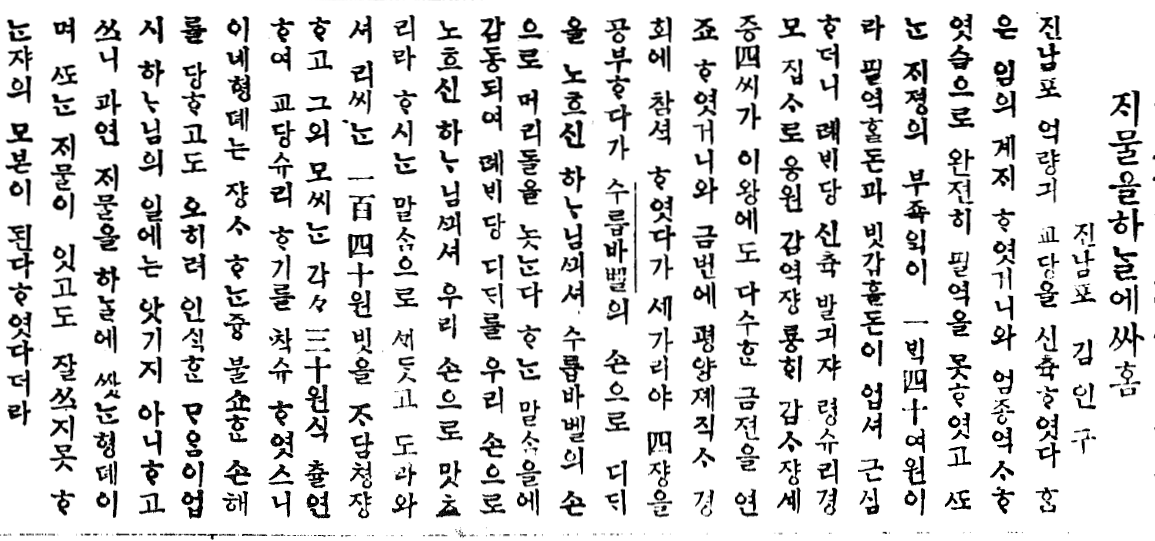 지물을하ᄂᆞᆯ에싸홈
진남포 김인구
진남포 억량긔 교당을 신츅ᄒᆞ엿다 홈
은 임의 계지 ᄒᆞ엿거니와 엄종역ᄉᆞᄒᆞ
엿슴으로 완젼히 필역을 못ᄒᆞ엿고 ᄯᅩ
ᄂᆞᆫ 지졍의 부죡익이 一빅四十여원이
라 필역ᄒᆞᆯ돈과 빗갑흘돈이 업셔 근심
ᄒᆞ더니 례비당 신츅 발긔쟈 령슈리경
모 집ᄉᆞ로응원 감역쟝룡희 갑ᄉᆞ쟝셰
증四씨가 이왕에도 다수ᄒᆞᆫ 금젼을 연
죠 ᄒᆞ엿거니와 금번에 평양졔직ᄉᆞ 경
회에 참셕 ᄒᆞ엿다가 세가리야 四쟝을
공부ᄒᆞ다가 수름바벨의 손으로 디디
을 노흐신 하ᄂᆞ님ᄭᅴ셔 수름바벨의 손
으로 머리돌을 놋ᄂᆞᆫ다 ᄒᆞᄂᆞᆫ 말ᄉᆞᆷ을에
감동되여 례비당 디디를 우리 손으로
노흐신 하ᄂᆞ님ᄭᅴ셔 우리 손으로 맛초
리라 ᄒᆞ시ᄂᆞᆫ 말ᄉᆞᆷ으로 ᄭᆡ둣고 도라와
셔 리씨ᄂᆞᆫ 一百四十원빗을 不담쳥쟝
ᄒᆞ고 그외 모씨ᄂᆞᆫ 각々 三十원식 츌연
ᄒᆞ여 교당슈리 ᄒᆞ기를 착슈 ᄒᆞ엿스니
이네형뎨는 쟝ᄉᆞ ᄒᆞᄂᆞᆫ즁 불쇼ᄒᆞᆫ 손해
를 당ᄒᆞ고도 오히려 인ᄉᆡᆨᄒᆞᆫ ᄆᆞ음이업
시 하ᄂᆞ님의 일에는 앗기지 아니ᄒᆞ고
쓰니 과연 지물을 하ᄂᆞᆯ에 쌋ᄂᆞᆫ형뎨이
며 ᄯᅩᄂᆞᆫ 지물이 잇고도 잘쓰지못 ᄒᆞ
ᄂᆞᆫ쟈의 모본이 된다ᄒᆞ엿다더라